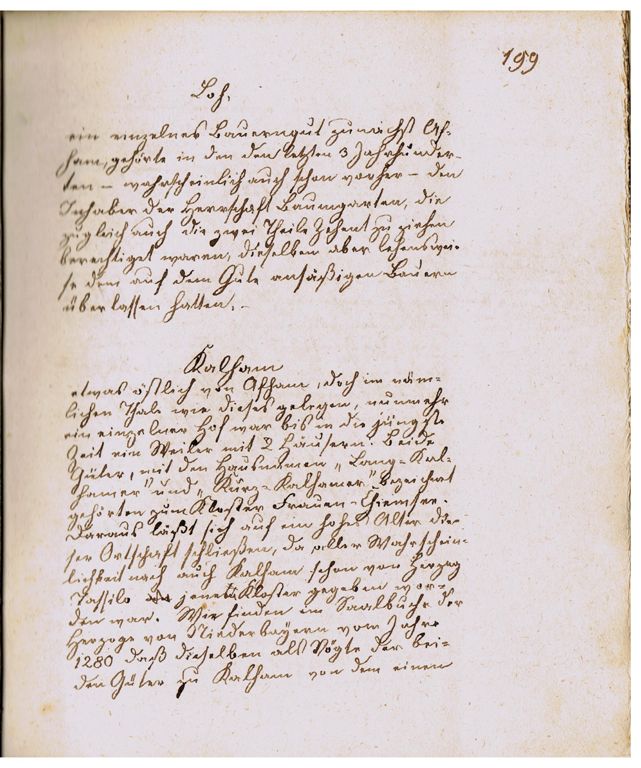 199
Loh.
ein einzelnes Bauerngut zunächst Af-
ham, gehörte in den den letzten 3 Jahrhunder-
ten – wahrscheinlich auch schon vorher – den
Inhaber der Herrschaft Baumgarten, die
zugleich auch die zwei Theile Zehent zu ziehen
berechtiget waren, dieselben aber lehenswei-
se dem auf dem Gute ansäßigen Bauern
überlassen hatten. –
Kalham
etwas östlich von Afham, doch im näm-
lichen Thale wie dieses gelegen, nunmehr
ein einzelner Hof war bis in die jüngste
Zeit ein Weiler mit 2 Häusern. Beide
Güter, mit den Hausnamen „Lang-Kal-
hamer" und „Kurz-Kalhamer" bezeichnet
gehörten zum Kloster Frauen-Chiemsee.
Daraus läßt sich auf ein hohes Alter die-
ser Ortschaft schließen, da aller Wahrschein-
lichkeit nach auch Kalham schon von Herzog
Tassilo an jenes Kloster gegeben wor-
den war. Wir finden im Saalbuche der
Herzoge von Niederbayern vom Jahre
1280 daß dieselben als Vögte der bei-
den Güter zu Kalham von dem einen